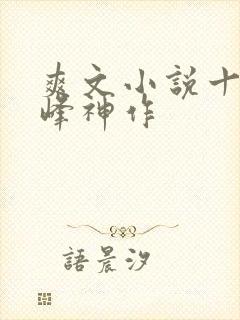 爽文小説十
峰神作
語晨汐